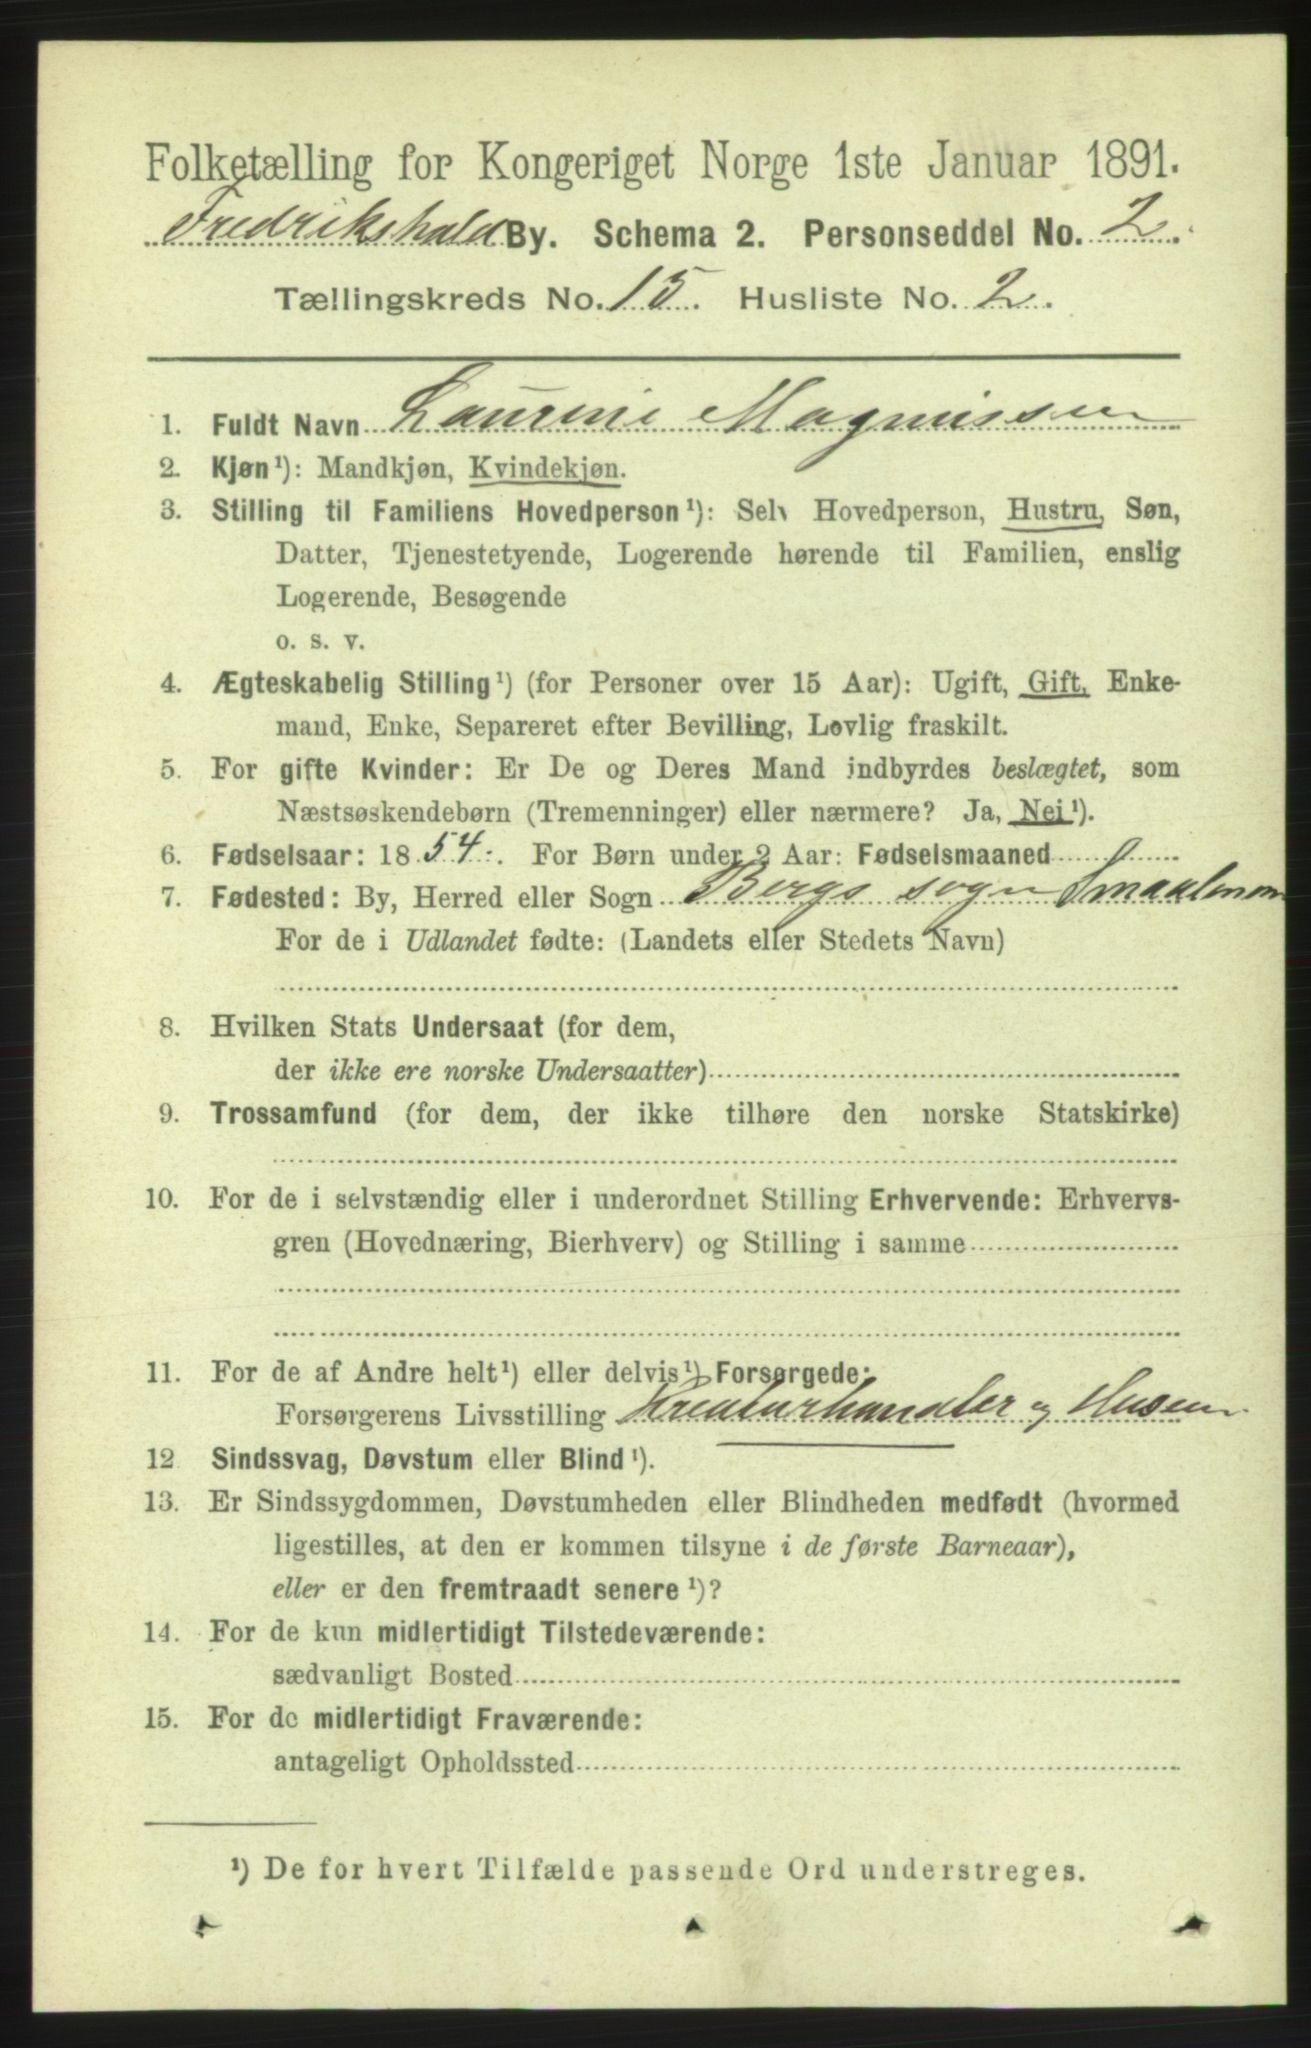 Folketælling for Kongeriget Norge 1ste Januar 1891.
Fredrikshald By. Schema 2. Personseddel No. 2.
Tællingskreds No. 15. Husliste No. 2.
1. Fuldt Navn Laurine Magnussen
2. Kjøn¹): Mandkjøn, Kvindekjøn.
3. Stilling til Familiens Hovedperson¹): Selv Hovedperson, Hustru, Søn,
Datter, Tjenestetyende, Logerende hørende til Familien, enslig
Logerende, Besøgende
o. s. v.
4. Ægteskabelig Stilling¹) (for Personer over 15 Aar): Ugift, Gift, Enke-
mand, Enke, Separeret efter Bevilling, Lovlig fraskilt.
5. For gifte Kvinder: Er De og Deres Mand indbyrdes beslægtet, som
Næstsøskendebørn (Tremenninger) eller nærmere? Ja, Nei¹).
6. Fødselsaar: 1854. For Børn under 2 Aar: Fødselsmaaned
7. Fødested: By, Herred eller Sogn Bergs sogn
For de i Udlandet fødte: (Landets eller Stedets Navn)
8. Hvilken Stats Undersaat (for dem,
der ikke ere norske Undersaatter)
9. Trossamfund (for dem, der ikke tilhøre den norske Statskirke)
10. For de i selvstændig eller i underordnet Stilling Erhvervende: Erhvervs-
gren (Hovednæring, Bierhverv) og Stilling i samme
11. For de af Andre helt¹) eller delvis¹) Forsørgede:
Forsørgerens Livsstilling Kreaturhandler og
12 Sindssvag, Døvstum eller Blind¹).
13. Er Sindssygdommen, Døvstumheden eller Blindheden medfødt (hvormed
ligestilles, at den er kommen tilsyne i de første Barneaar),
eller er den fremtraadt senere¹)?
14. For de kun midlertidigt Tilstedeværende:
sædvanligt Bosted
15. For de midlertidigt Fraværende:
antageligt Opholdssted
¹) De for hvert Tilfælde passende Ord understreges.